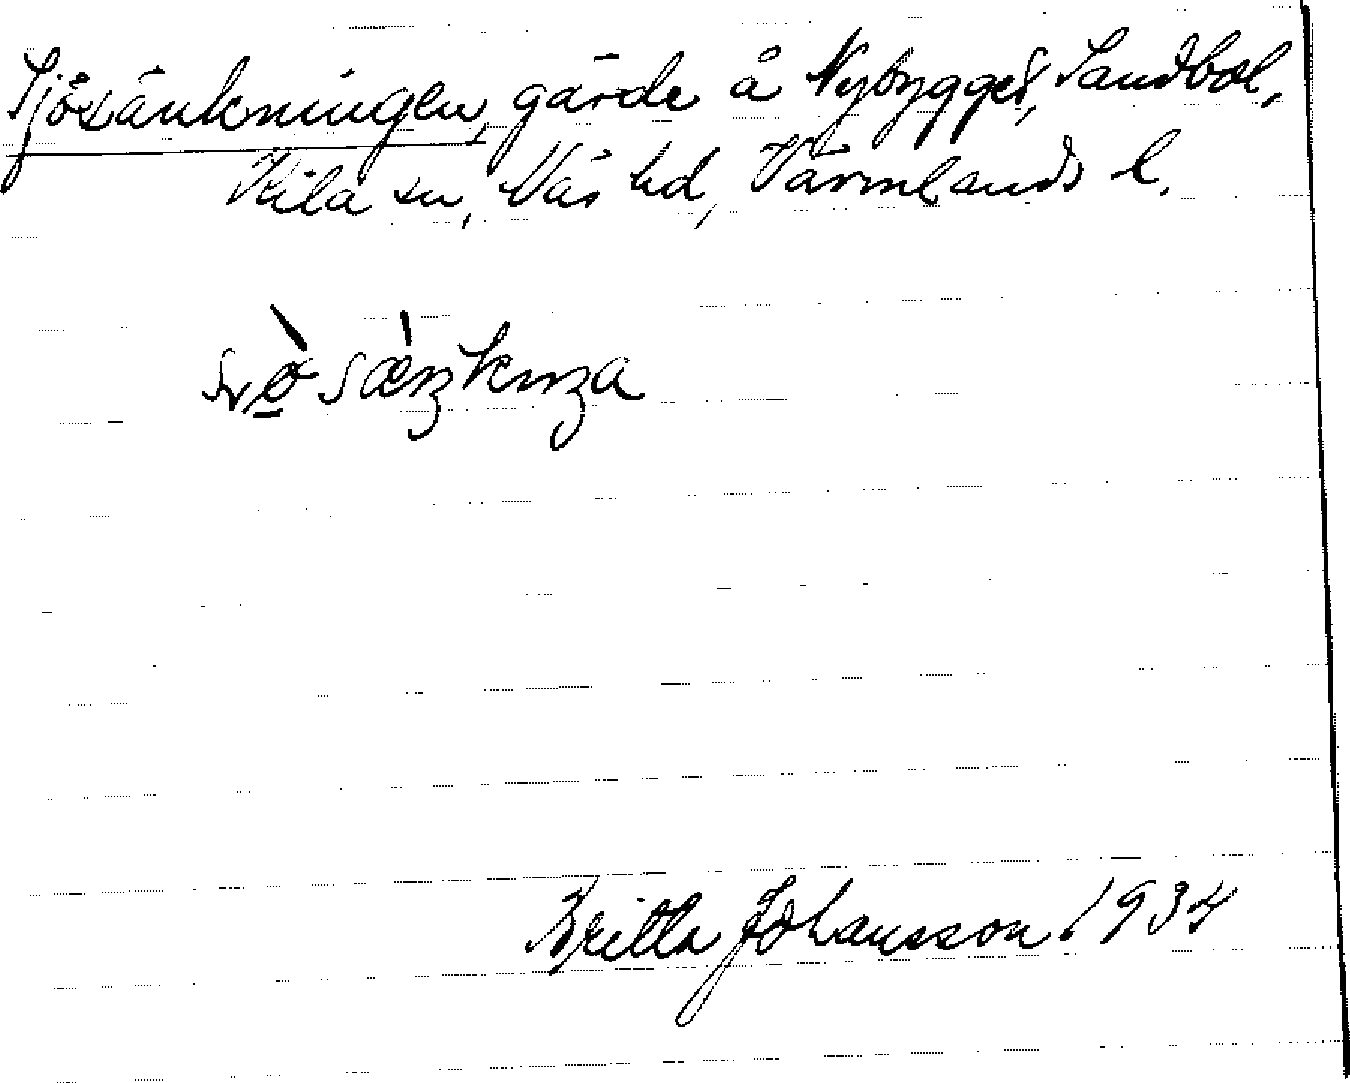 Sjösänkningen, gärde å Nybygget, Sandbol,
Kila sn, Näs hd, Värmlands l.
Britta Johansson 1934